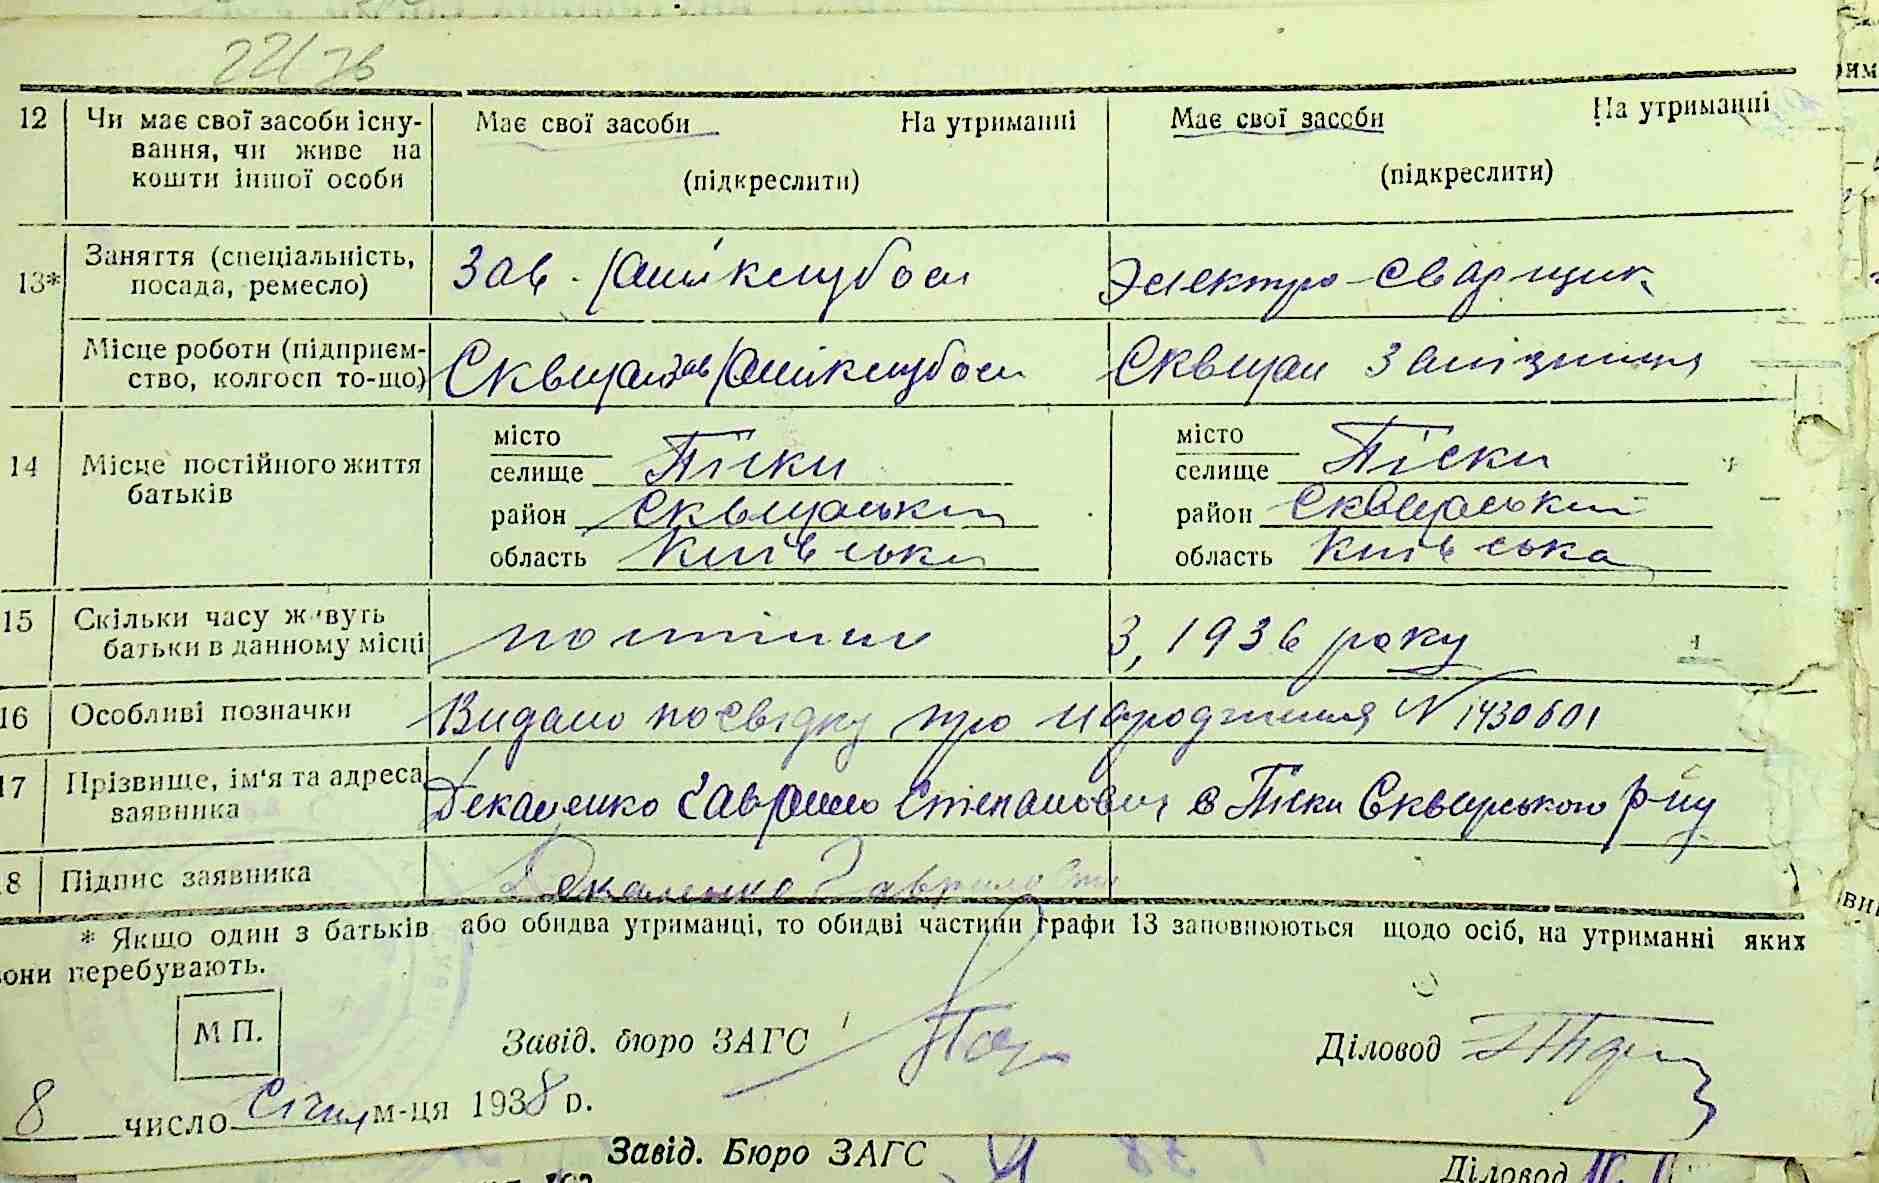 22/ЗВ
12 Чи має свої засоби існу- Має свої засоби На утриманні Має свої засоби На утриманні
вання, чи живе на
кошти іншої особи (підкреслити) (підкреслити)
13* Заняття (спеціальність, Зав. Райклубом Электро-сварщик
посада, ремесло)
Місце роботи (підприєм- Райклубом Залізниця
ство, колгосп то-що)
14 Місце постійного життя місто місто
батьків селище Піски селище Піски
район Сквирський район Сквирський
область Київська область Київська
15 Скільки часу живуть З, 1936 року
батьки в данному місці
16 Особливі позначки Видано посвідку про народження N 1430601
17 Прізвище, ім'я та адреса Гаврило Степанович с Піски Сквирського р-ну
заявника
18 Підпис заявника Гаврило
* Якщо один з батьків або обидва утриманці, то обидві частини графи 13 заповнюються щодо осіб, на утриманні яких
вони перебувають.
М П. Завід. бюро ЗАГС Діловод
8 число Січня м-ця 1938 р.
Завід. Бюро ЗАГС Діловод